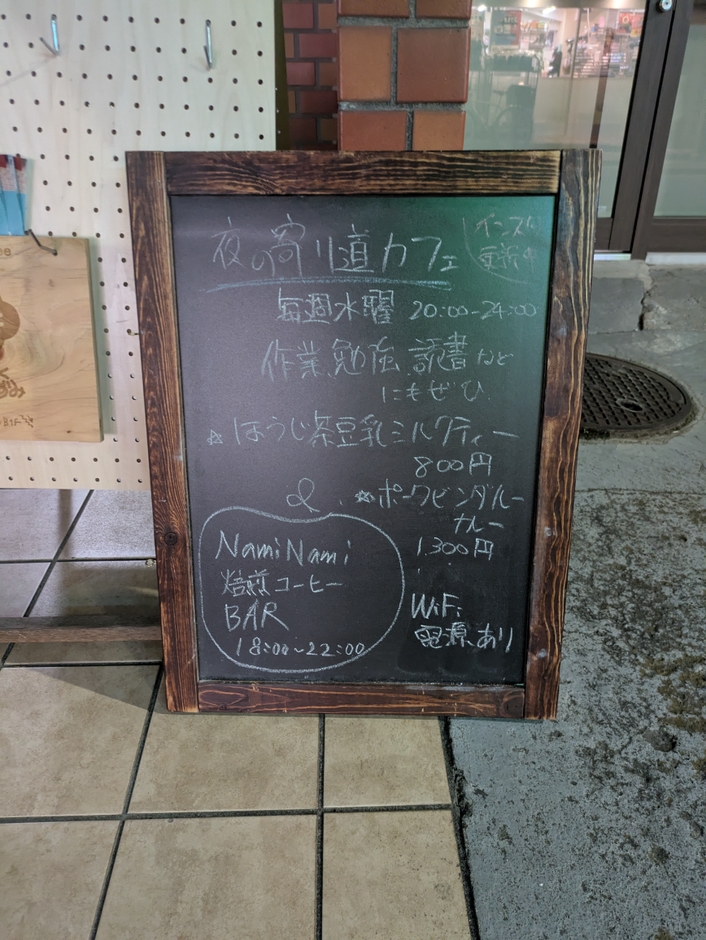 夜の寄り道カフェ
インスタ
更新中
毎週水曜 20:00-24:00
作業、勉強、読書など
にもぜひ
☆ほうじ茶豆乳ミルクティー
800円
& ☆ポークビンダルー
カレー
1,300円
NamiNami
焙煎コーヒー
BAR
18:00~22:00
WiFi
電源あり